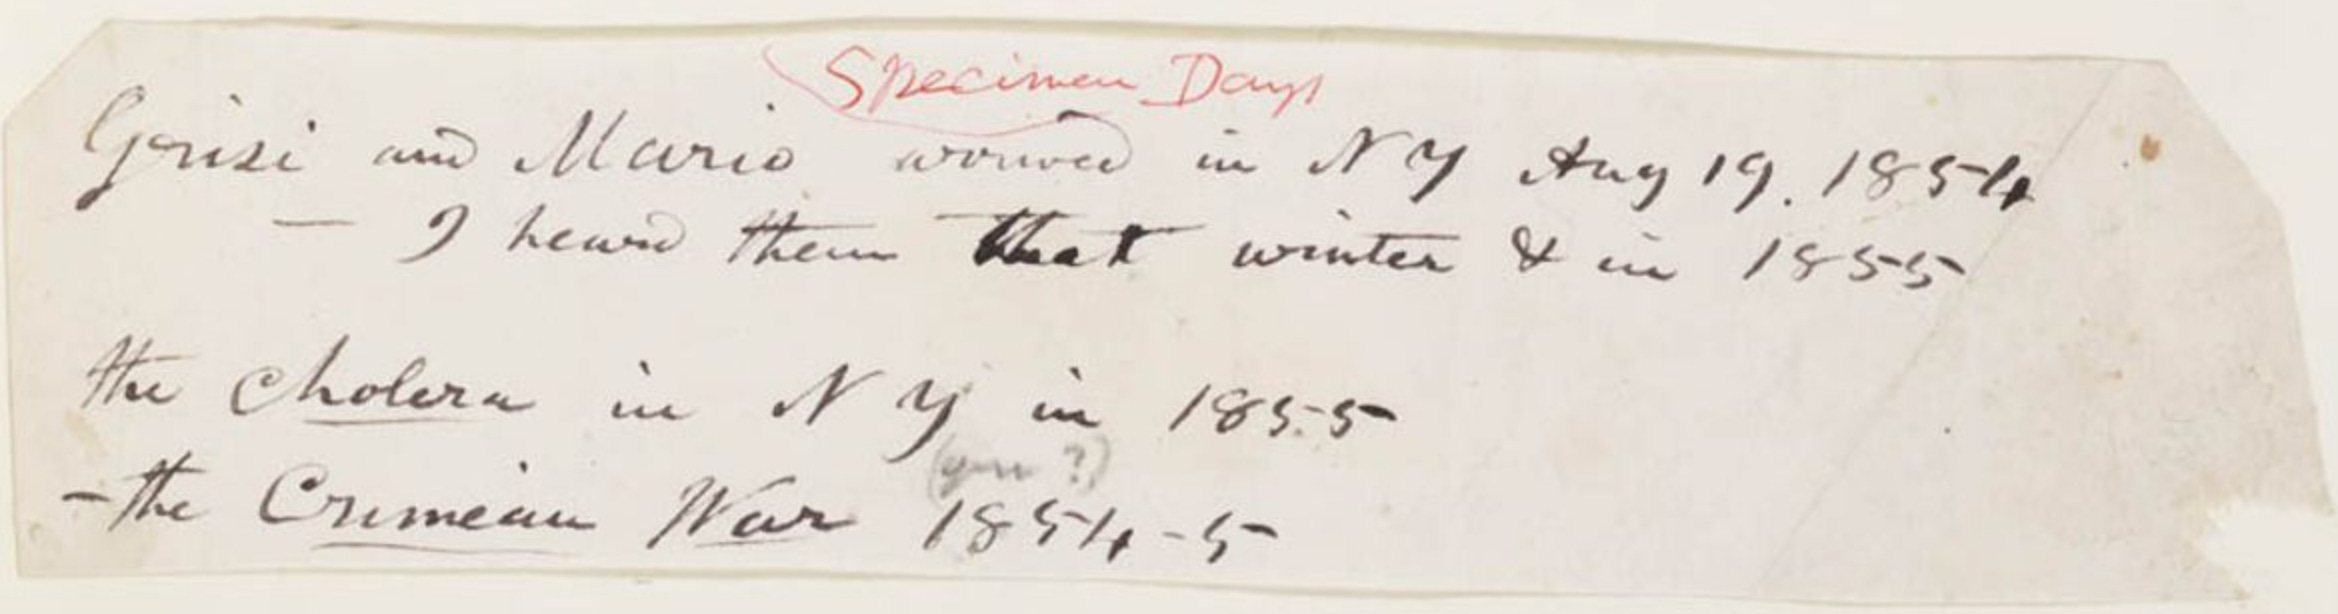 Specimen Days
Grisi and Mario arrived in N Y Aug 19. 1854
— I heard them that winter & in 1855
the cholera in N Y in 1855
(?)
– the Crimean War 1854-5